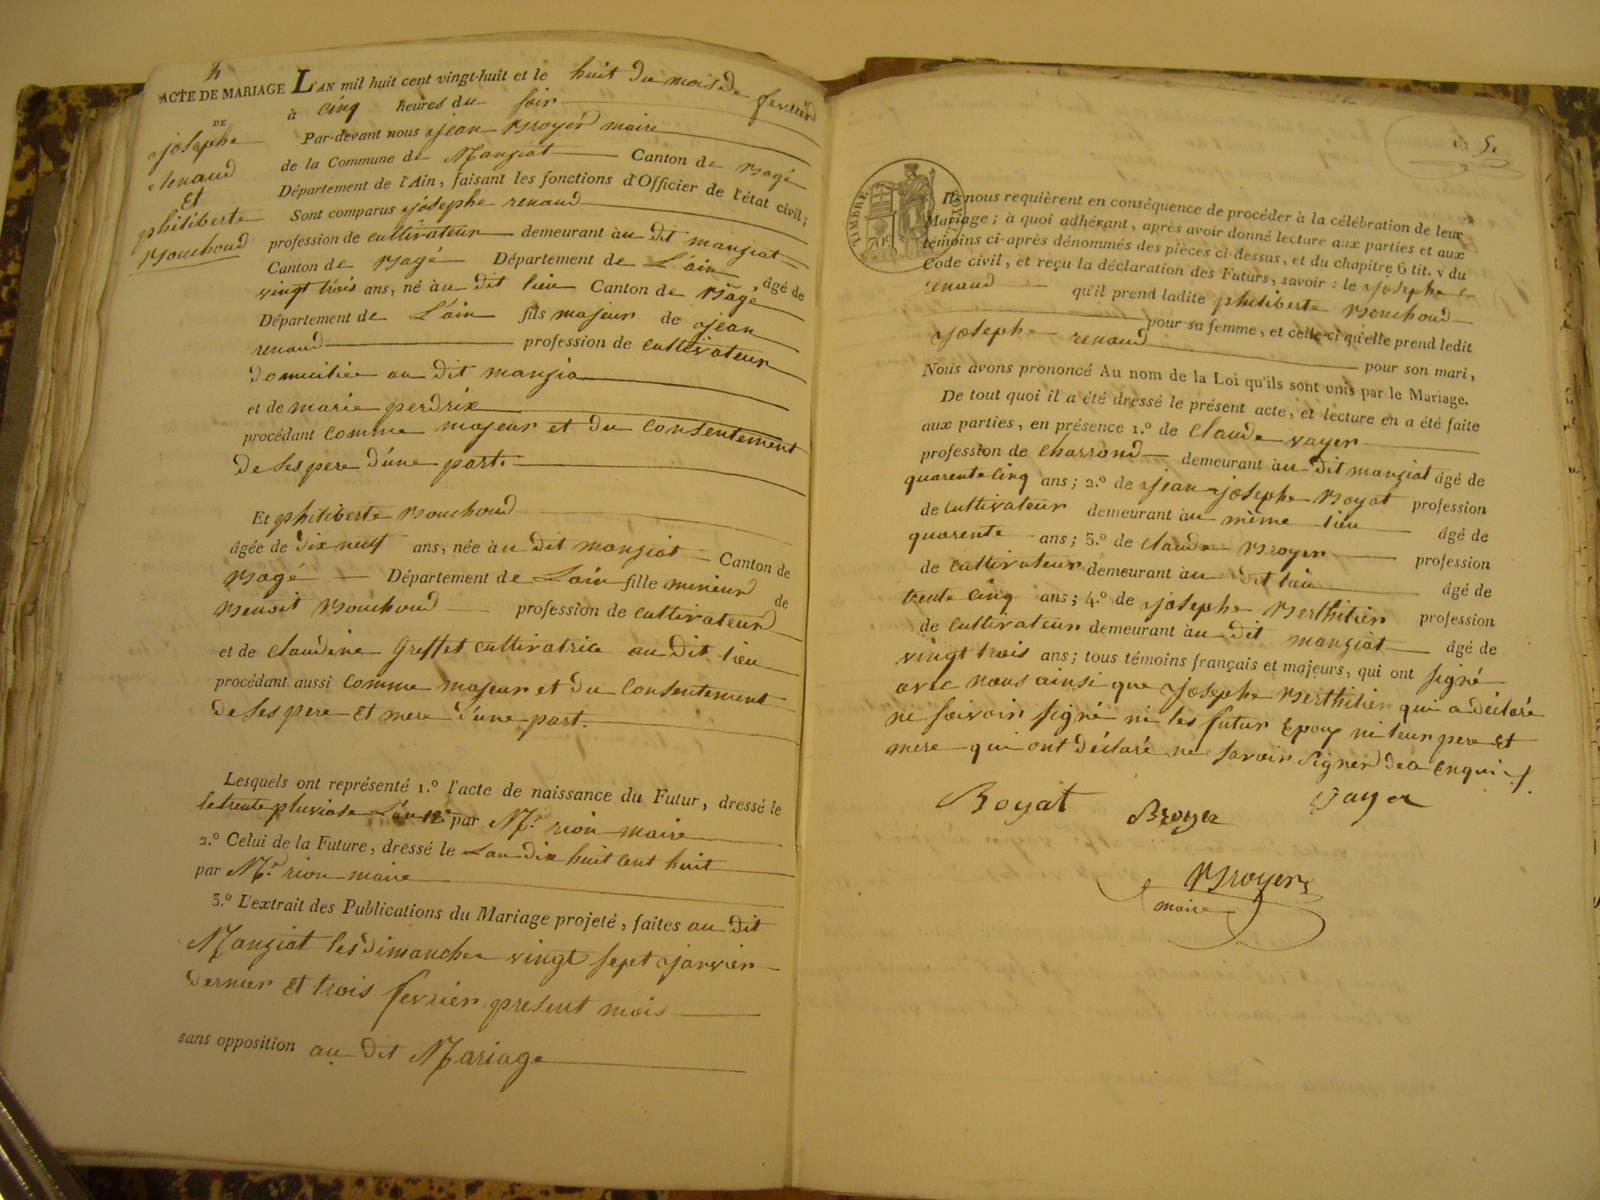 4
ACTE DE MARIAGE L'AN mil huit cent vingt-huit et le huit du mois de fevrier
DE
josephe
renaud
Et
philiberte
Bouchoud
à cinq heures du soir
Par-devant nous jean Broyer maire
de la Commune de Mangiat Canton de Bagé
Département de l'Ain, faisant les fonctions d'Officier de l'état civil;
Sont comparus josephe renaud
profession de cultivateur demeurant au dit mangiat
Canton de Bagé Département de L'ain, âgé de
vingt trois ans, né au dit lieu Canton de Bagé
Département de L'ain fils majeur de jean
renaud profession de cultivateur
domiciliee au dit mangia
et de marie perdrix
procédant comme majeur et du consentement
de ses pere d'une part.
Et philiberte Bouchoud
âgée de dix neuf ans, née au dit mangiat Canton de
Bagé Département de Lain fille mineur de
Benoit Bouchoud profession de cultivateur
et de claudine Greffet cultivatrice au dit lieu
procédant aussi comme majeur et du consentement
de ses pere et mere d'une part.
Lesquels ont représenté 1.º l'acte de naissance du Futur, dressé le
le trente pluviose L'an 12e par Mr. rion maire
2.º Celui de la Future, dressé le Lan dix huit cent huit
par Mr. rion maire
3.º L'extrait des Publications du Mariage projeté, faites au dit
Mangiat les dimanches vingt sept janvier
dernier et trois fevrier present mois
sans opposition au dit Mariage
5.
TIMBRE ROYAL
Ils nous requièrent en conséquence de procéder à la célébration de leur
Mariage; à quoi adhérant, après avoir donné lecture aux parties et aux
témoins ci-après dénommés des pièces ci-dessus, et du chapitre 6 tit. v du
Code civil, et reçu la déclaration des Futurs, savoir: le josephe
renaud qu'il prend ladite philiberte Bouchoud
pour sa femme, et celle-ci qu'elle prend ledit
josephe renaud pour son mari,
Nous avons prononcé Au nom de la Loi qu'ils sont unis par le Mariage.
De tout quoi il a été dressé le présent acte, et lecture en a été faite
aux parties, en présence 1.º de claude vayer
profession de charrond demeurant au dit mangiat âgé de
quarente cinq ans; 2.º de jean josephe Boyat profession
de cultivateur demeurant au même lieu âgé de
quarente ans; 3.º de claude Broyer profession
de cultivateur demeurant au dit lieu âgé de
trente cinq ans; 4.º de josephe Berthilier profession
de cultivateur demeurant au dit mangiat âgé de
vingt trois ans; tous témoins français et majeurs, qui ont signé
avec nous ainsi que josephe Berthilier qui a déclaré
ne savoir signé ni les futur Epoux ni leur pere et
mere qui ont déclaré ne savoir signer de ce enqui
Boyat Broyer Vayer
Broyer
maire